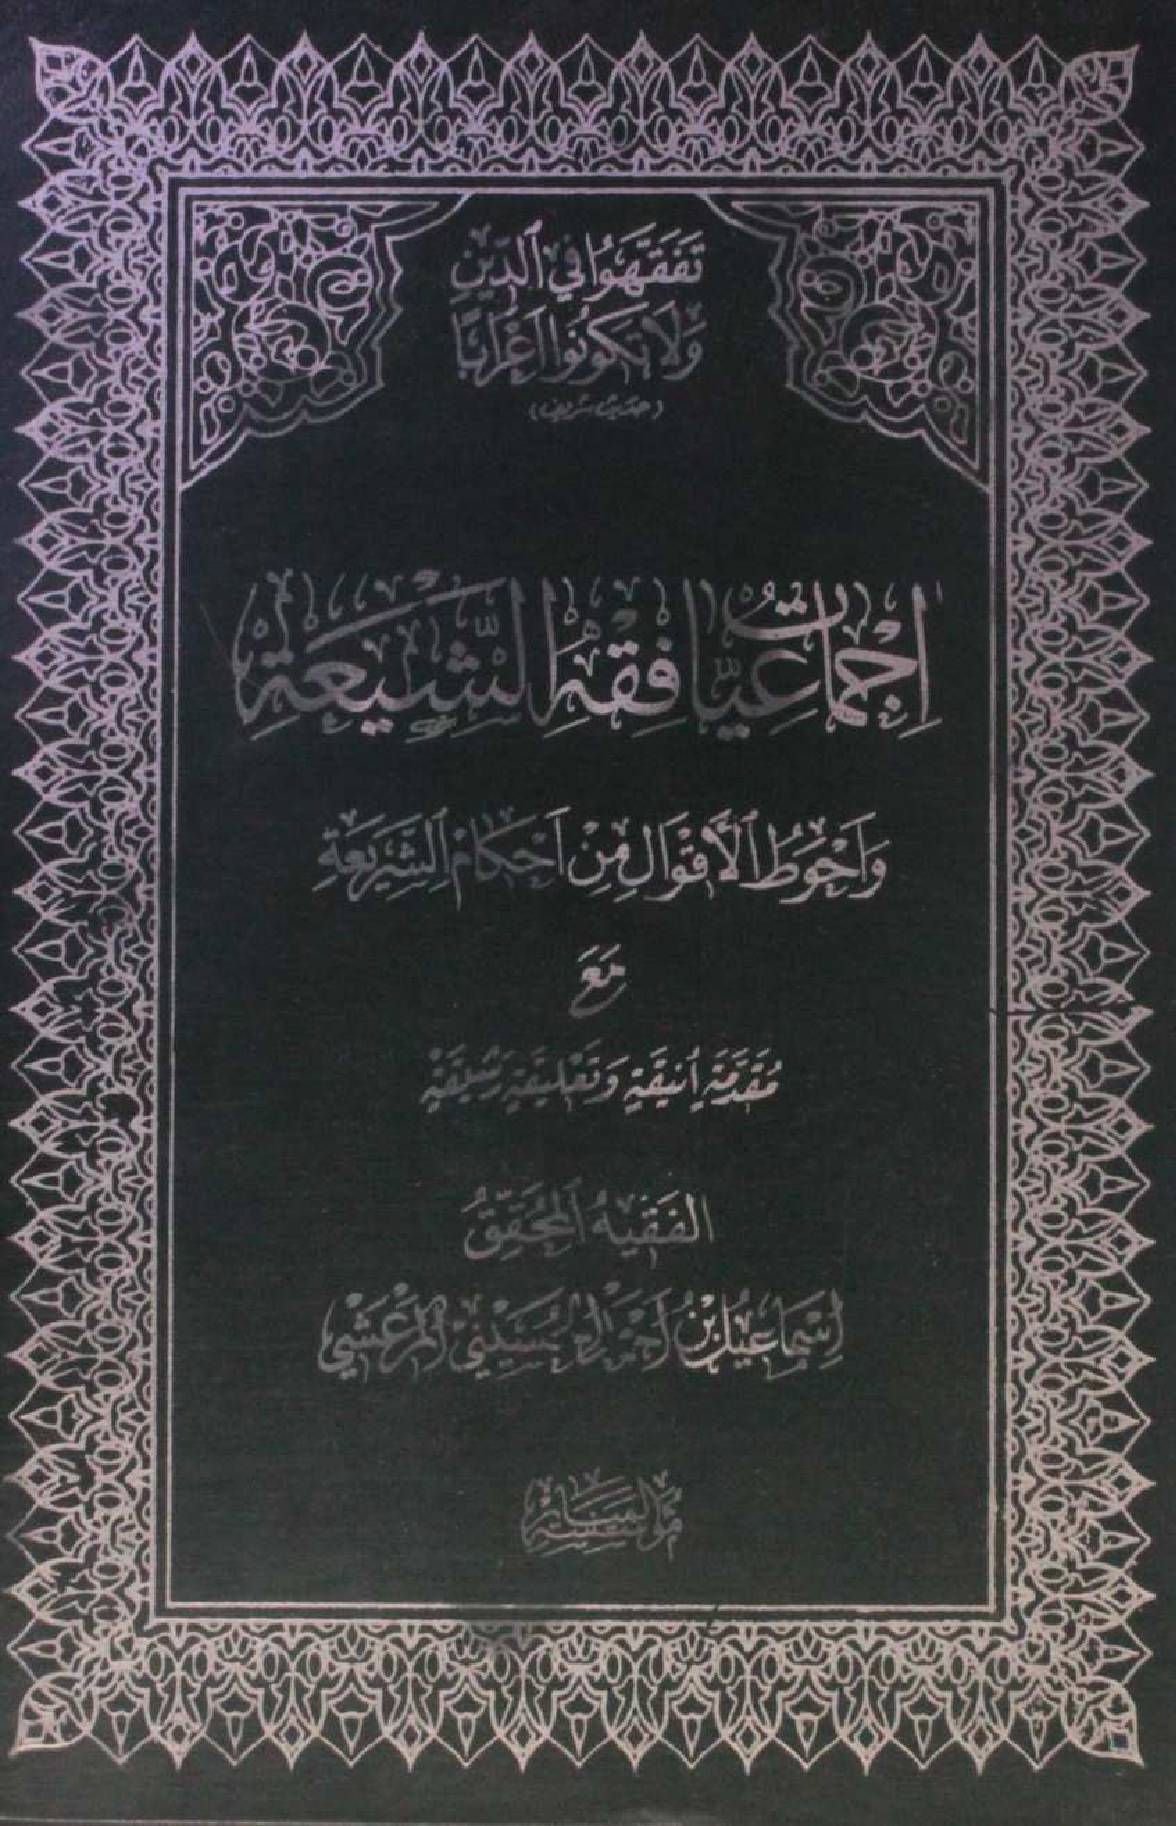 تَفَقَّهَوُا في ٱلدّينِ
وَلَا تَكوُنُوا اَعْرابًا
(حديث شريف)
اِجْماعِيّاتُ فِقْهِ الشّيعَةِ
وَاَحْوَطُ ٱلْأَقْوَالِ مِنْ اَحْكامِ ٱلشَّريعَةِ
مَعَ
مُقَدَّمَةٍ اَنيقَةٍ وَتَعْليقَةٍ رَشيقَةٍ
الفَقيهُ ٱلمُحَقِّقُ
اِسْماعيلُ بْنُ اَحْمَدَ الحُسَيْنيّ المَرْعَشي
مؤسسة المنار